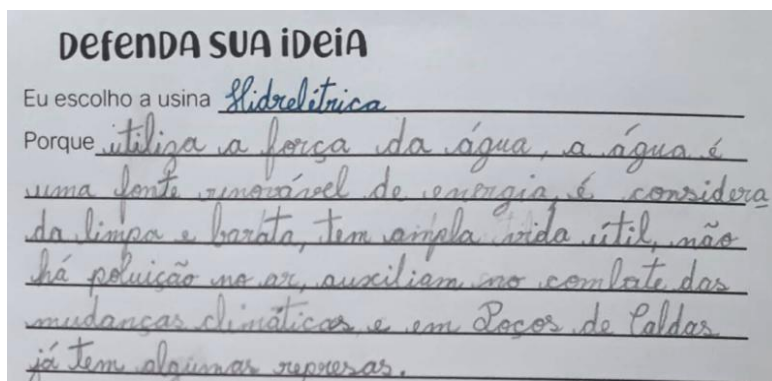 Defenda sua ideia
Eu escolho a usina Hidrelétrica
Porque utiliza a força da água, a água é
uma fonte renovável de energia, é considera
da limpa e barata, tem ampla vida útil, não
há poluição no ar, auxiliam no combate das
mudanças climáticas e em Poços de Caldas
já tem algumas represas.